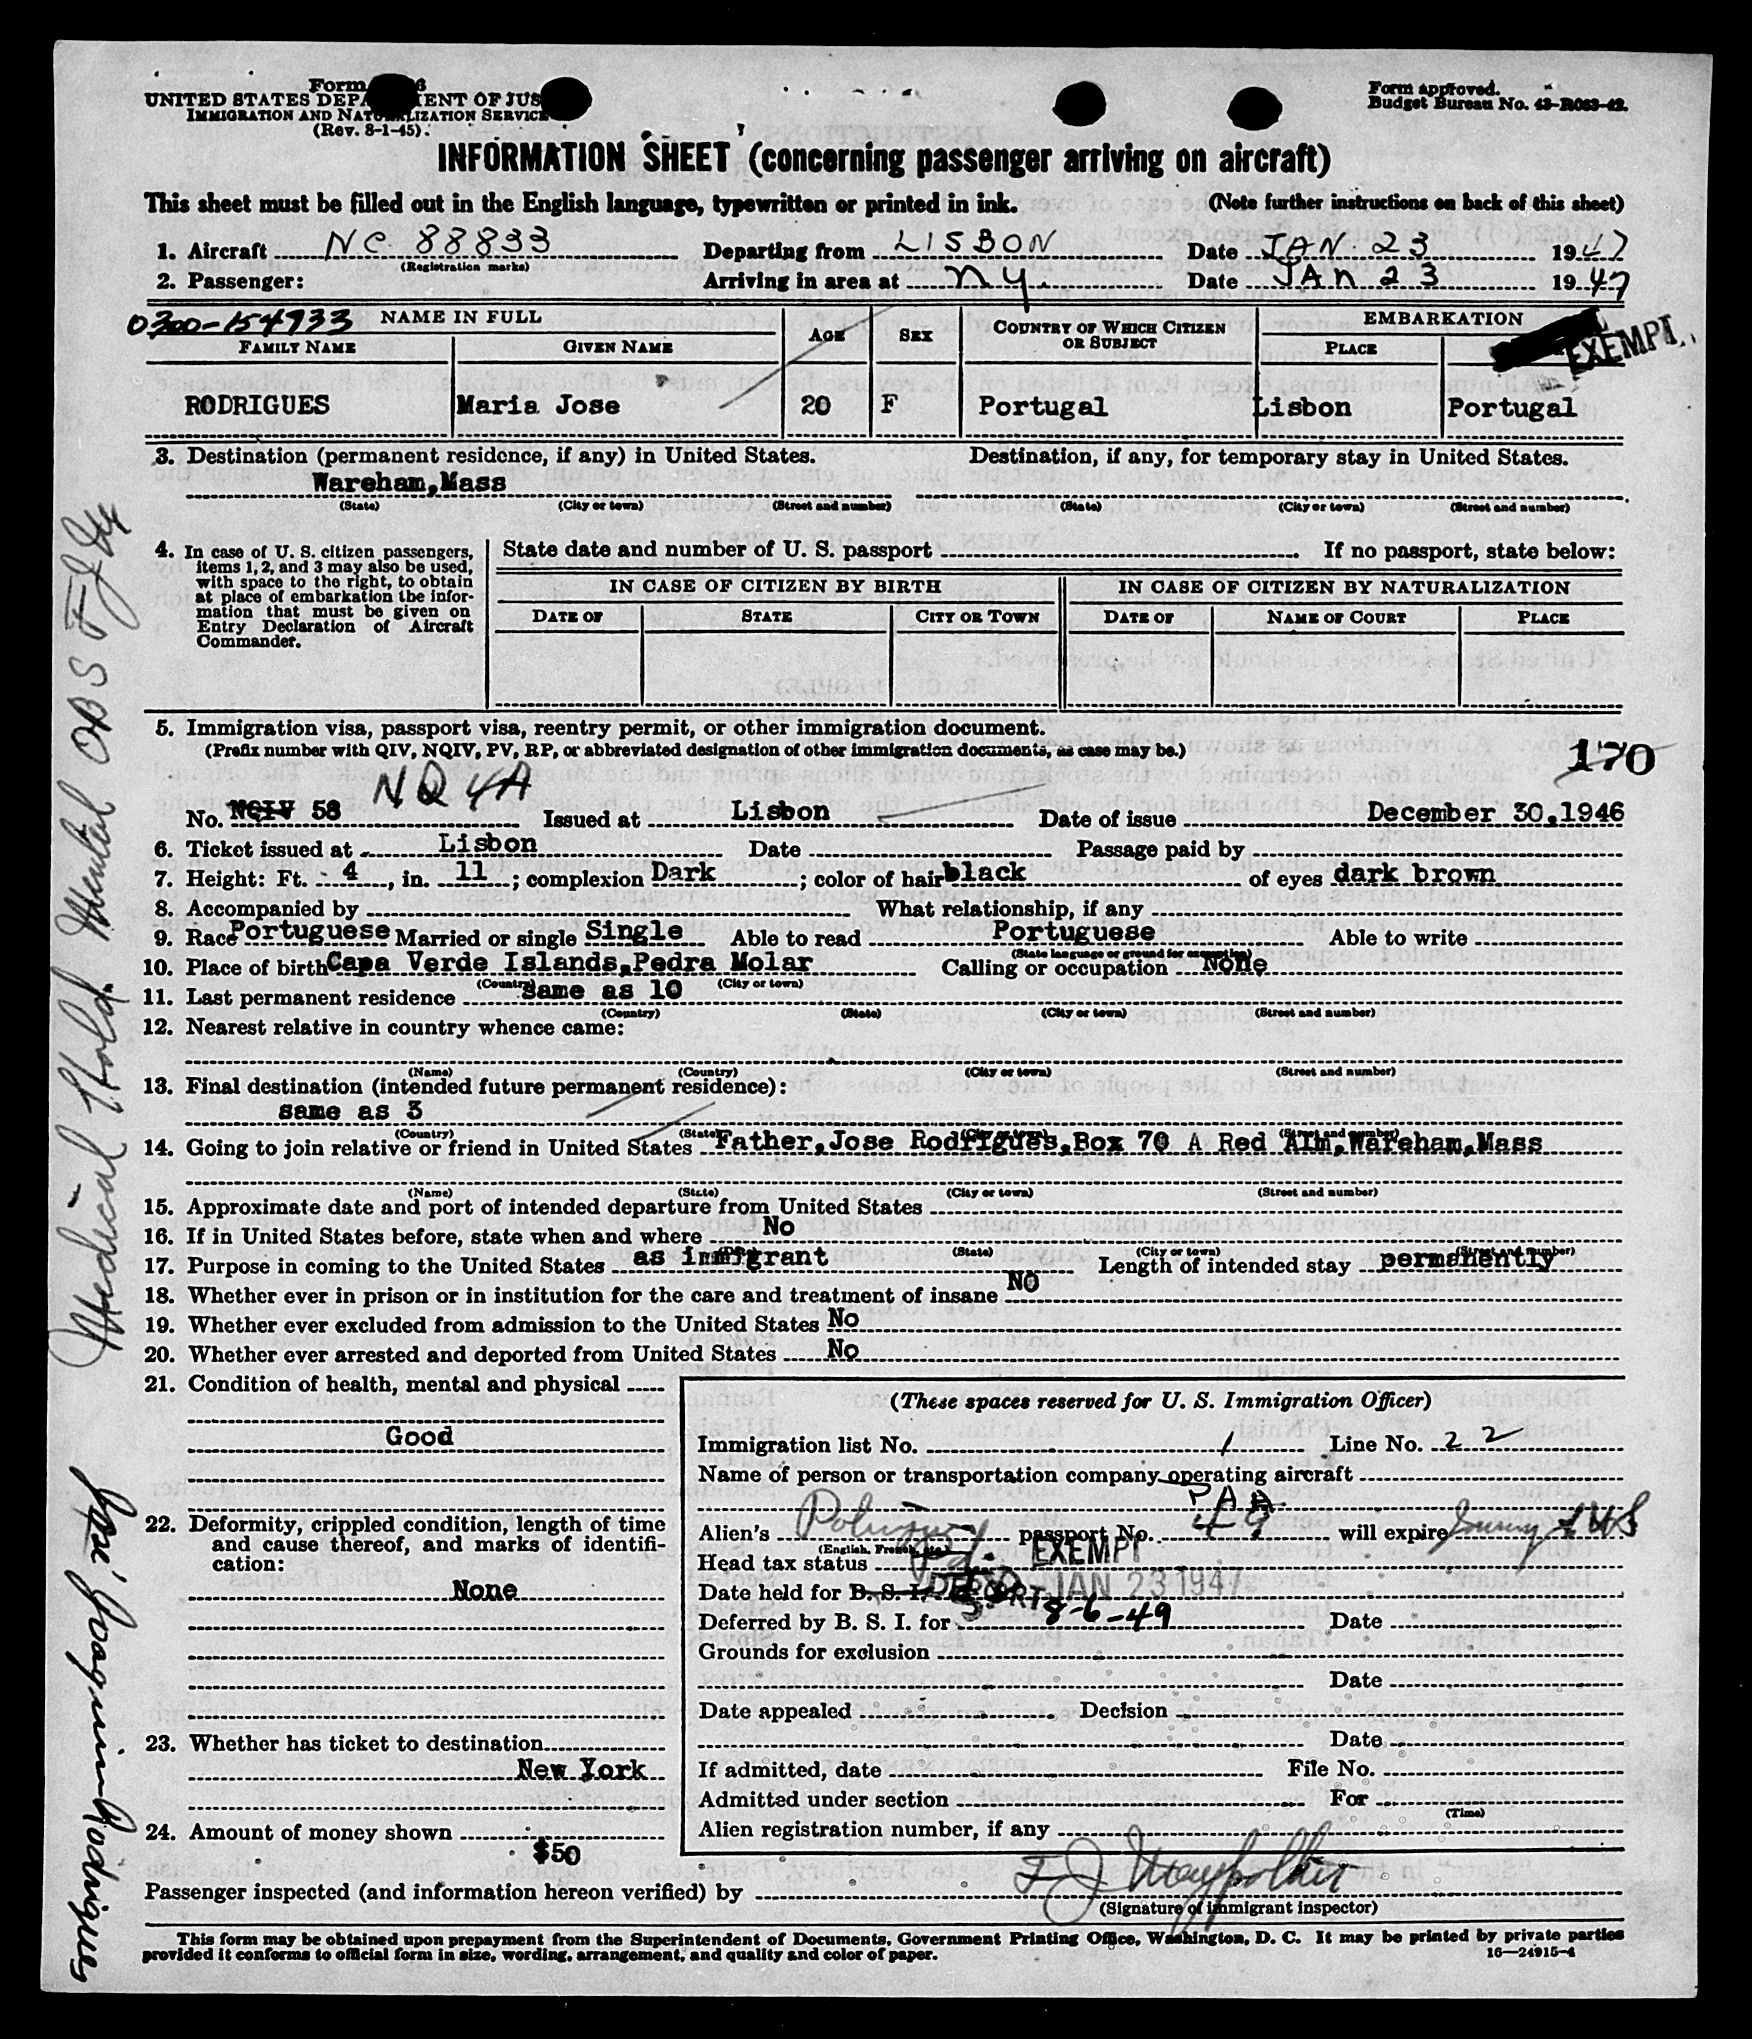 Form
UNITED STATES DEPA ENT OF JUS
IMMIGRATION AND NATURALIZATION SERVICE
(Rev. 8-1-45)
Form approved.
Budget Bureau No. 43-R083-42.
INFORMATION SHEET (concerning passenger arriving on aircraft)
This sheet must be filled out in the English language, typewritten or printed in ink. (Note further instructions on back of this sheet)
1. Aircraft NC 88833 Departing from LISBON Date JAN 23 1947
(Registration marks)
2. Passenger: Arriving in area at N.Y. Date JAN 23 1947
0300-154933 NAME IN FULL AGE SEX COUNTRY OF WHICH CITIZEN OR SUBJECT EMBARKATION
FAMILY NAME GIVEN NAME PLACE EXEMPT
RODRIGUES Maria Jose 20 F Portugal Lisbon Portugal
3. Destination (permanent residence, if any) in United States. Destination, if any, for temporary stay in United States.
Wareham,Mass
(State) (City or town) (Street and number) (State) (City or town) (Street and number)
4. In case of U. S. citizen passengers, items 1, 2, and 3 may also be used, with space to the right, to obtain at place of embarkation the information that must be given on Entry Declaration of Aircraft Commander.
State date and number of U. S. passport If no passport, state below:
IN CASE OF CITIZEN BY BIRTH IN CASE OF CITIZEN BY NATURALIZATION
DATE OF STATE CITY OR TOWN DATE OF NAME OF COURT PLACE
5. Immigration visa, passport visa, reentry permit, or other immigration document.
(Prefix number with QIV, NQIV, PV, RP, or abbreviated designation of other immigration documents, as case may be.)
170
NQ4A
No. NQIV 58 Issued at Lisbon Date of issue December 30,1946
6. Ticket issued at Lisbon Date Passage paid by
7. Height: Ft. 4, in. 11; complexion Dark; color of hair black of eyes dark brown
8. Accompanied by What relationship, if any
9. Race Portuguese Married or single Single Able to read Portuguese Able to write
(State language or ground for exemption)
10. Place of birth Capa Verde Islands,Pedra Molar Calling or occupation None
(Country) (City or town)
11. Last permanent residence same as 10
(Country) (State) (City or town) (Street and number)
12. Nearest relative in country whence came:
(Name) (Country) (City or town) (Street and number)
13. Final destination (intended future permanent residence):
same as 3
(Country) (State) (City or town) (Street and number)
14. Going to join relative or friend in United States Father,Jose Rodrigues,Box 70 A Red Alm,Wareham,Mass
(Name) (State) (City or town) (Street and number)
15. Approximate date and port of intended departure from United States
16. If in United States before, state when and where No
(State) (City or town) (Street and number)
17. Purpose in coming to the United States as immigrant Length of intended stay permanently
18. Whether ever in prison or in institution for the care and treatment of insane NO
19. Whether ever excluded from admission to the United States No
20. Whether ever arrested and deported from United States No
21. Condition of health, mental and physical
Good
22. Deformity, crippled condition, length of time and cause thereof, and marks of identification:
None
23. Whether has ticket to destination
New York
24. Amount of money shown
$50
(These spaces reserved for U. S. Immigration Officer)
Immigration list No. 1 Line No. 22
Name of person or transportation company operating aircraft
PAA
Alien's passport No. 49 will expire
(English, French, etc.)
Head tax status EXEMPT
Date held for B. S. I. JAN 23 1947
Deferred by B. S. I. for 8-6-49 Date
Grounds for exclusion
Date
Date appealed Decision
Date
If admitted, date File No.
Admitted under section For
(Time)
Alien registration number, if any
Passenger inspected (and information hereon verified) by
(Signature of immigrant inspector)
This form may be obtained upon prepayment from the Superintendent of Documents, Government Printing Office, Washington, D. C. It may be printed by private parties
provided it conforms to official form in size, wording, arrangement, and quality and color of paper. 16—24915-4
Medical Hold. Mental OBS
José Joaquim Rodrigues